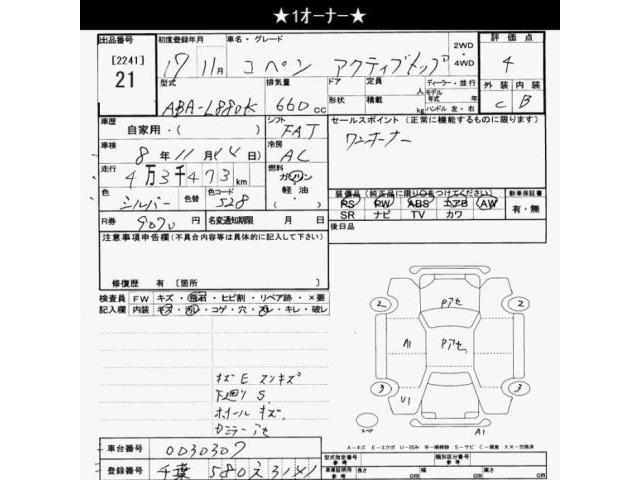 ★1オーナー★
出品番号 [2241] 21
初度登録年月 17年 11月
車名・グレード コペン アクティブトップ
2WD・4WD
評価点 4
外装 C 内装 B
型式 ABA-L880K
排気量 660 cc
ドア 形状
定員 人 積載 kg
ディーラー・並行
モデル年式 年式
ハンドル 左・右
車歴 自家用・( )
シフト FAT
セールスポイント (正常に機能するものに限ります)
ワンオーナー
車検 8年 11月(4日)
冷房 AC
走行 4万3千473km
燃料 ガソリン 軽油・
色 シルバー 色替 色コード S28
装備品 (純正品に限り○をつけてください)
PS PW ABS エアB AW
SR ナビ TV カワ
新車保証書 有・無
R券 9070円 名変通知期限 月 日
後日品
注意事項申告欄(不具合内容等は具体的に記入して下さい)
修復歴 有 [箇所 ]
検査員記入欄 FW キズ・飛石・ヒビ割・リペア跡・×要
内装 キズ・汚レ・コゲ・穴・スレ・キレ・破レ
キズ E スリキズ
下廻り S
ホイール キズ
Pアセ
Pアセ
2 2
A1
3 3
U1
A1
スペア
A-キズ E-エクボ U-凹み W-補修跡 S-サビ C-腐食 XX-交換済
車台番号 0030307
登録番号 千葉 580え3141
型式指定番号 参考 類別区分番号 参考
車庫証明用 参考 長さ cm 幅 cm 高さ cm